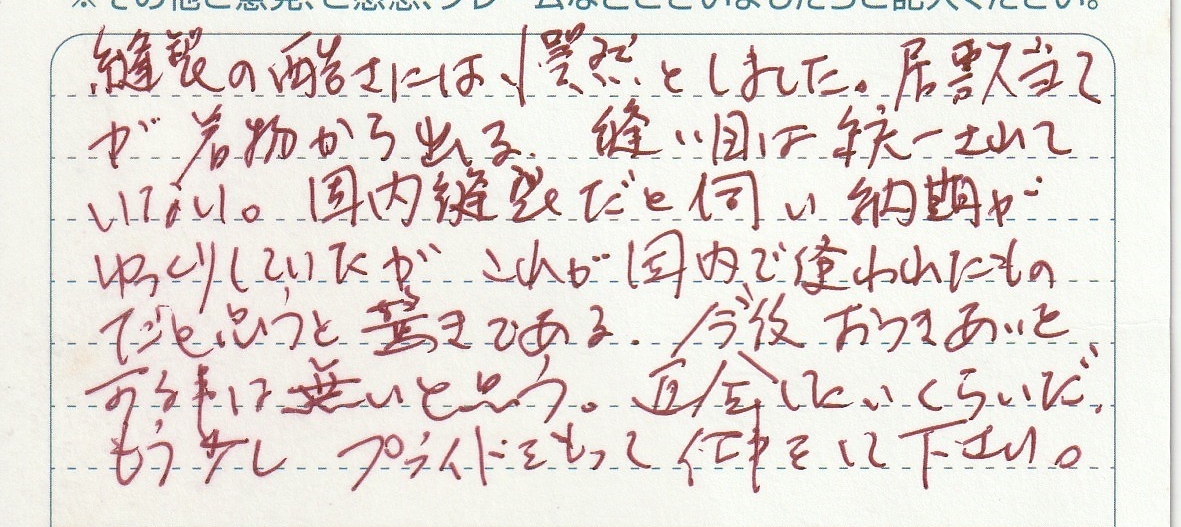 ※その他ご意見、ご感想、クレームなどございましたらご記入ください。
縫製の酷さには愕然としました。居敷当て
が着物から出る。縫い目は統一されて
いない。国内縫製だと伺い納期が
ゆっくりしていたが これが国内で縫われたもの
だと思うと驚きである。今後おつきあいを
する事は無いと思う。返金したいくらいだ。
もう少し プライドをもって仕事をして下さい。